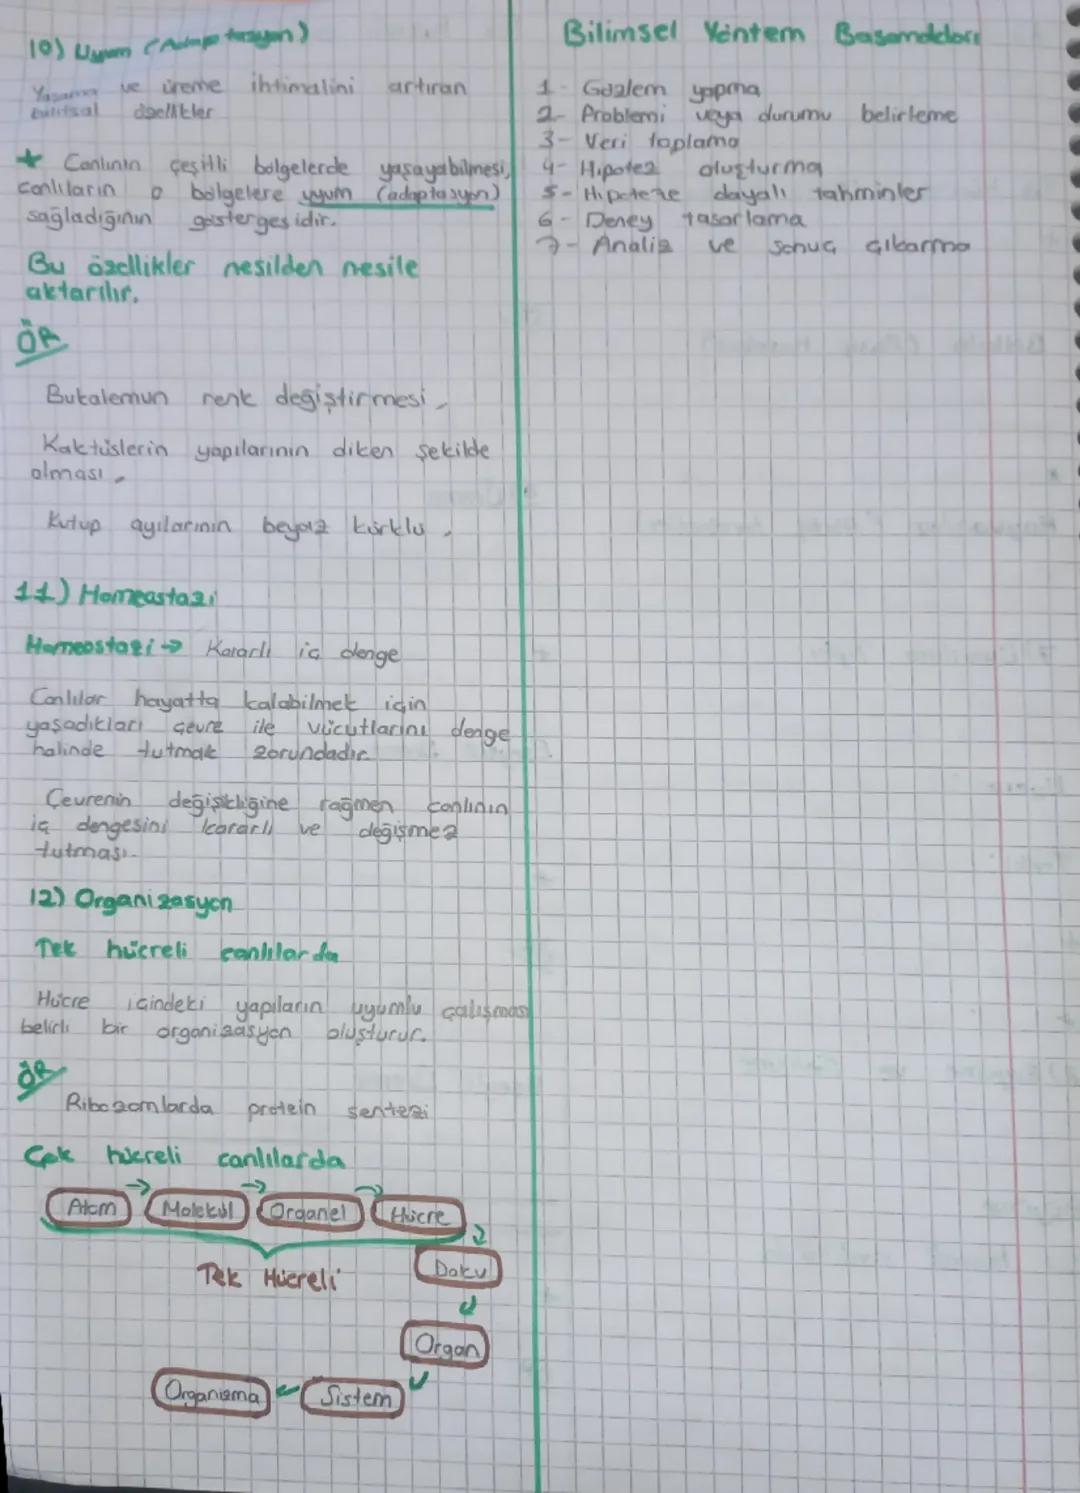 10) Uyum (Adaptasyon)
Yaşama ve üreme ihtimalini artıran
kalıtsal özellikler
★ Canlının çeşitli bölgelerde yaşayabilmesi,
canlıların o bölgelere uyum (adaptasyon)
sağladığının göstergesidir.
Bu özellikler nesilden nesile
aktarılır.
ÖR
Bukalemun renk değiştirmesi,
Kaktüslerin yapılarının diken şekilde
olması,
Kutup ayılarının beyaz kürklü.
11) Homeastazi
Homeostazi → Kararlı iç denge
Canlılar hayatta kalabilmek için
yaşadıkları çevre ile vücutlarını denge
halinde tutmak zorundadır.
Çevrenin değişikliğine rağmen canlının
iç dengesini kararlı ve değişmez
tutması.
12) Organizasyon
Tek hücreli canlılarda
Hücre içindeki yapıların uyumlu çalışması
belirli bir organizasyon oluşturur.
ÖR
Ribozomlarda protein sentezi
Çok hücreli canlılarda
Atom → Molekül → Organel → Hücre
Tek Hücreli
Doku
Organ
Organizma ← Sistem
Bilimsel Yöntem Basamakları
1- Gözlem yapma
2- Problemi veya durumu belirleme
3- Veri toplama
4- Hipotez oluşturma
5- Hipoteze dayalı tahminler
6- Deney tasarlama
7- Analiz ve sonuç çıkarma